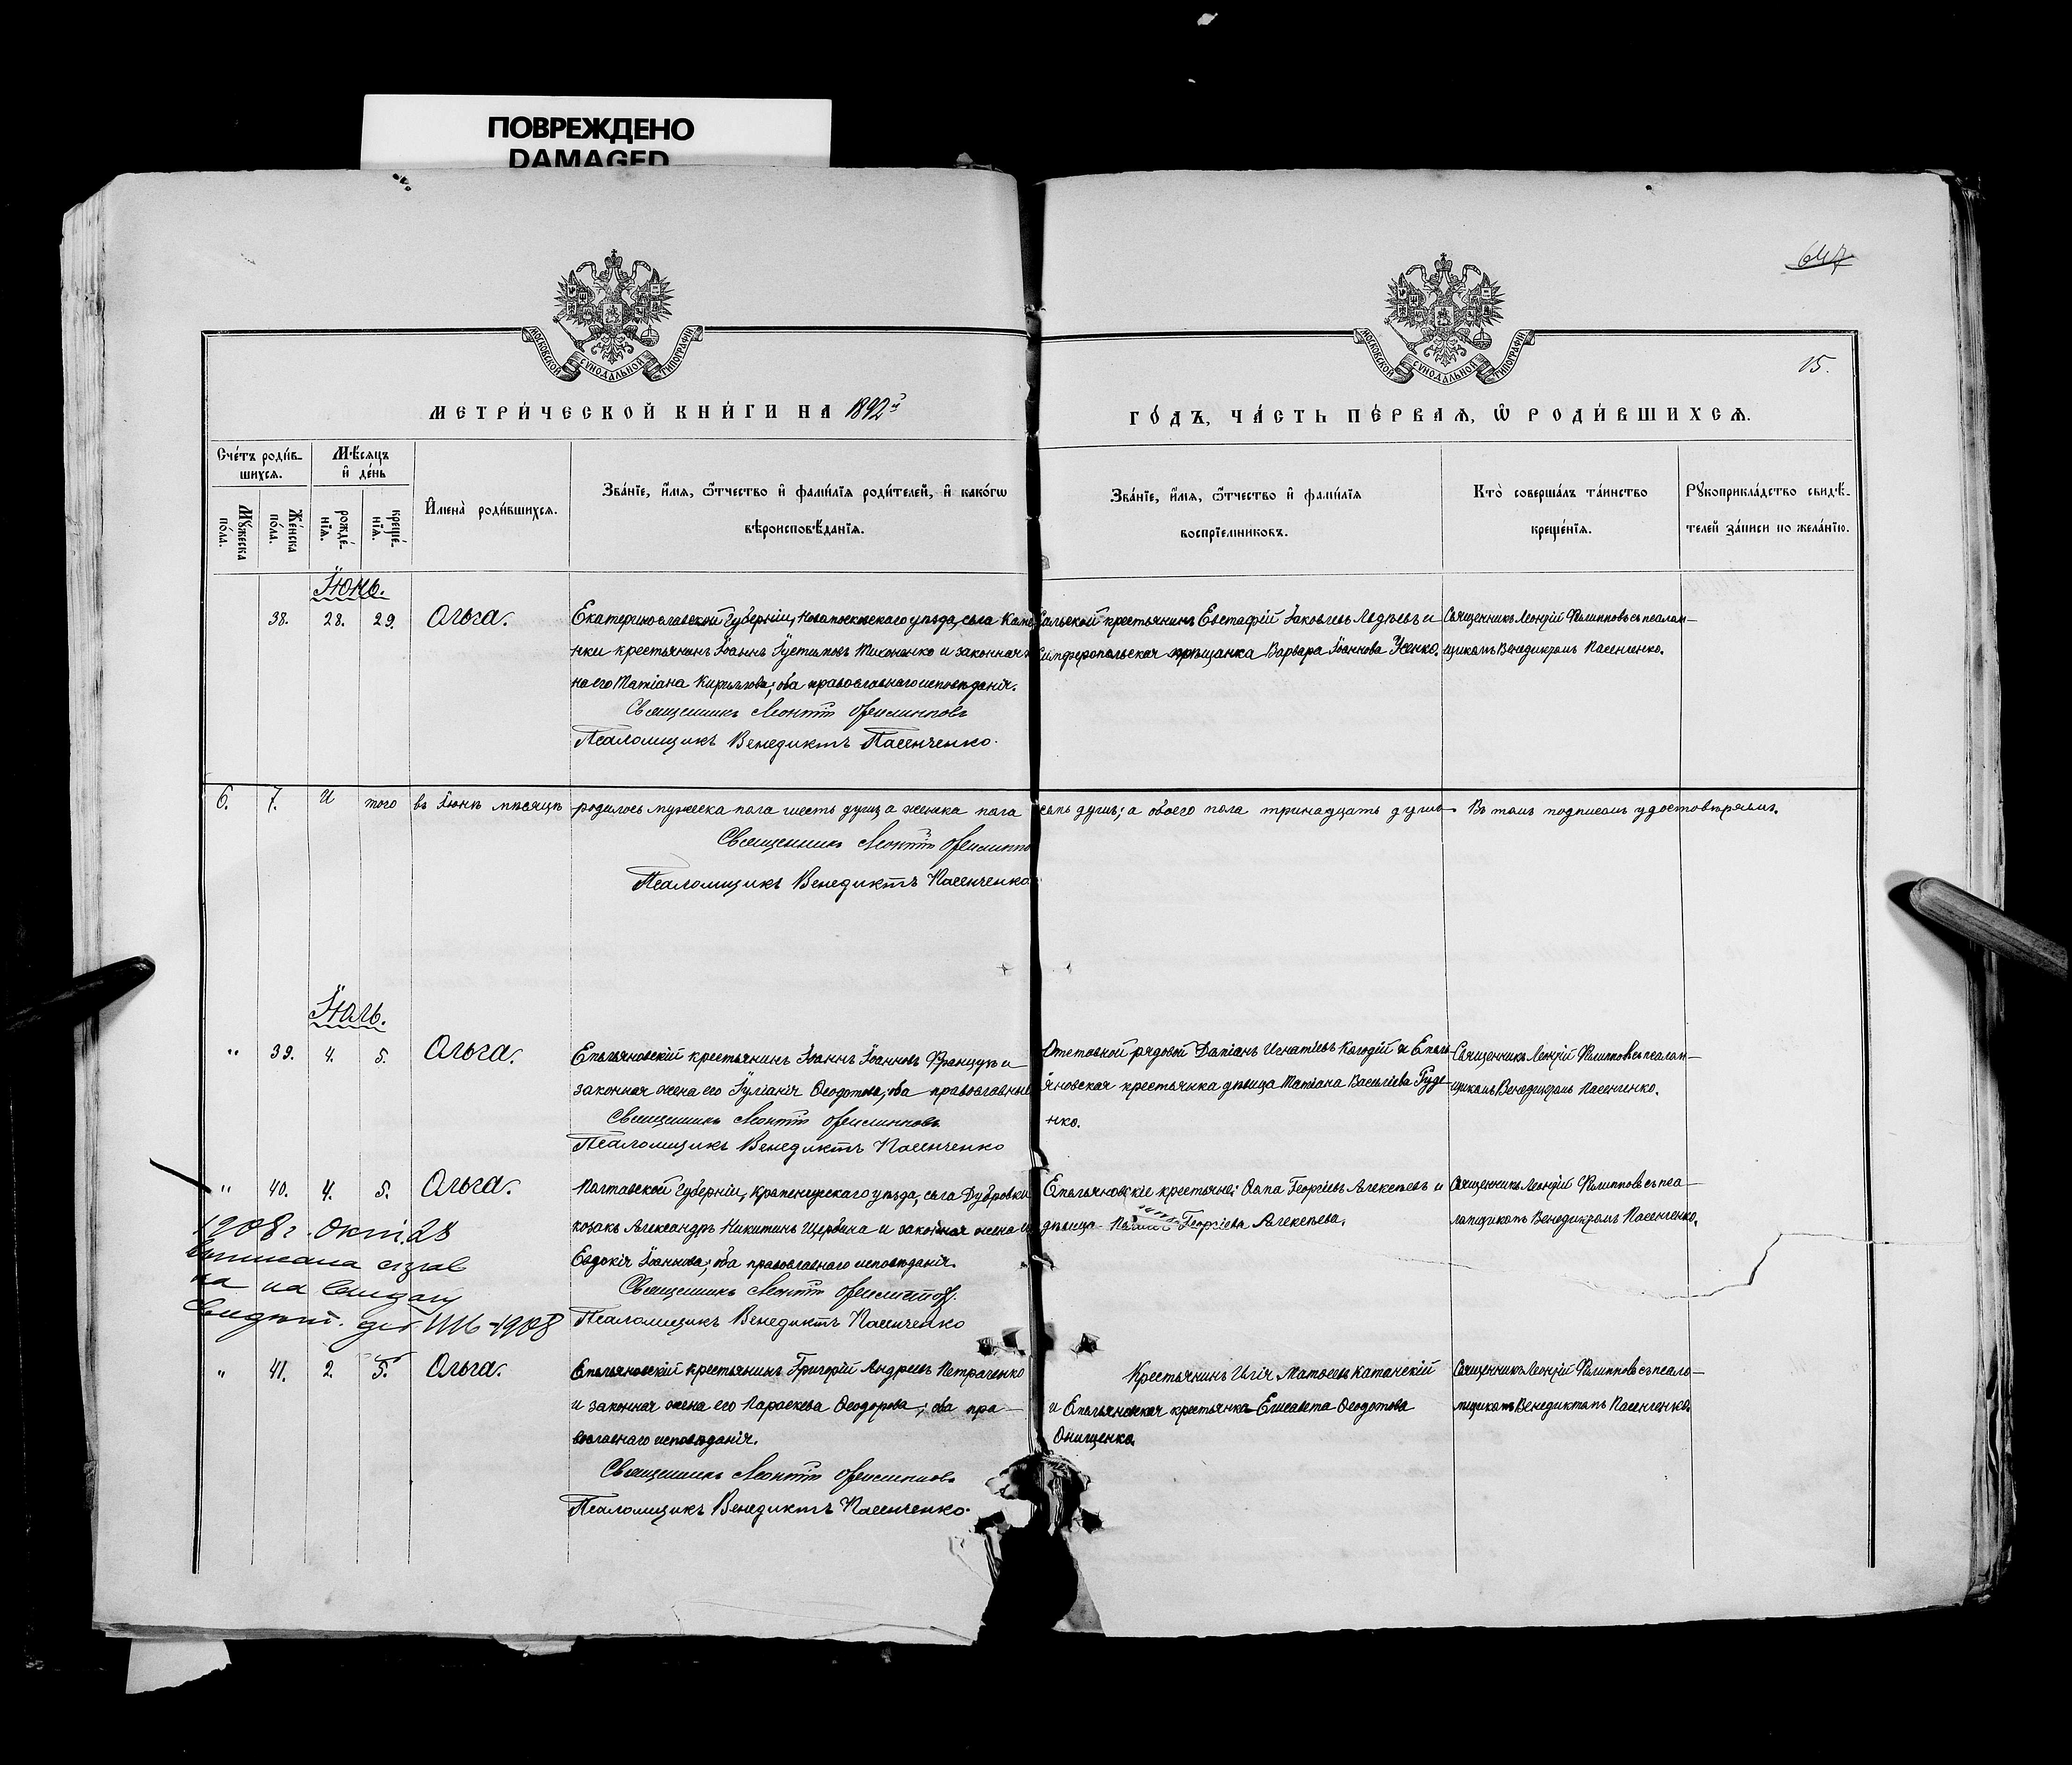 ПОВРЕЖДЕНО
DAMAGED
647
15.
МОСКОВСКОЙ СУНОДАЛЬНОЙ ТИПОГРАФІИ
МОСКОВСКОЙ СУНОДАЛЬНОЙ ТИПОГРАФІИ
МЕТРИ́ЧЕСКОЙ КНИ́ГИ НА 1892й
ГО́ДЪ, ЧА́СТЬ ПЕ́РВАѦ, Ѽ РОДИ́ВШИХСѦ.
Сче́тъ роди́в-
шихсѧ.
Мѣ́сѧцъ
и҆ де́нь
Мꙋ́жеска
по́ла.
Же́нска
по́ла.
рожде́-
нїѧ.
креще́-
нїѧ.
И҆мена̀ роди́вшихсѧ.
Зва́нїе, и҆́мѧ, ѻ҆́тчество и҆ фамѝлїѧ роди́телей, и҆ како́гѡ
вѣроисповѣ́данїѧ.
Зва́нїе, и҆́мѧ, ѻ҆́тчество и҆ фами́лїѧ
воспрїе́мниковъ.
Кто̀ соверша́лъ та́инство
креще́нїѧ.
Рꙋкоприкла́дство свидѣ́-
телей за́писи по жела́нїю.
Іюнь.
38. 28. 29. Ольга.
Екатеринославской Губерніи, Новомосковскаго уѣзда, села
нки крестьянинъ Іоаннъ Іустиновъ Тихоненко и законная
на его Татіана Кириллова; оба православнаго исповѣданія.
Священникъ Леонтій Филипповъ
Псаломщикъ Венедиктъ Пасенченко.
крестьянинъ Евстафій Іаковлевъ и
Симферопольская мѣщанка Варвара Іоаннова Усенко.
Священникъ Леонтій Филипповъ съ псалом-
щикомъ Венедиктомъ Пасенченко.
6. 7. И того въ Іюнѣ мѣсяцѣ родилось мужеска пола шесть душъ а женска пола семь душъ; а обоего пола тринадцать душъ Въ томъ подписомъ удостовѣряемъ.
Священникъ Леонтій Филиппо
Псаломщикъ Венедиктъ Пасенченко
Іюль.
" 39. 4. 5. Ольга.
Емельяновскій крестьянинъ Іоаннъ Іоанновъ Французъ и
законная жена его Іуліанія Ѳеодотова; оба православные
Священникъ Леонтій Филипповъ
Псаломщикъ Венедиктъ Пасенченко
Отставной рядовой Даміанъ Игнатіевъ Колодій и Емель-
яновская крестьянка дѣвица Татіана Васильева Гуде-
нко.
Священникъ Леонтій Филипповъ съ псалом-
щикомъ Венедиктомъ Пасенченко.
" 40. 4. 5. Ольга.
Полтавской Губерніи, Кременчугскаго уѣзда, села Дубровки
козакъ Александръ Никитинъ Щербина и законная жена
Евдокія Іоаннова; оба православнаго исповѣданія.
Священникъ Леонтій Филипповъ.
Псаломщикъ Венедиктъ Пасенченко
Емельяновскіе крестьяне: Ѳома Георгіевъ Алексѣевъ и
дѣвица Георгіева Алексѣева.
Священникъ Леонтій Филипповъ съ пса-
ломщикомъ Венедиктомъ Пасенченко.
1908 г. окт. 28
на на выдачу
1908
" 41. 2. 5. Ольга.
Емельяновскій крестьянинъ Григорій Андреевъ Петраченко
и законная жена его Параскева Ѳеодорова; оба пра-
вославнаго исповѣданія.
Священникъ Леонтій Филипповъ
Псаломщикъ Венедиктъ Пасенченко.
Крестьянинъ Илія Матѳеевъ Катанскій
и Емельяновская крестьянка Елисавета Ѳеодотова
Онищенко.
Священникъ Леонтій Филипповъ съ псало-
мщикомъ Венедиктомъ Пасенченко.